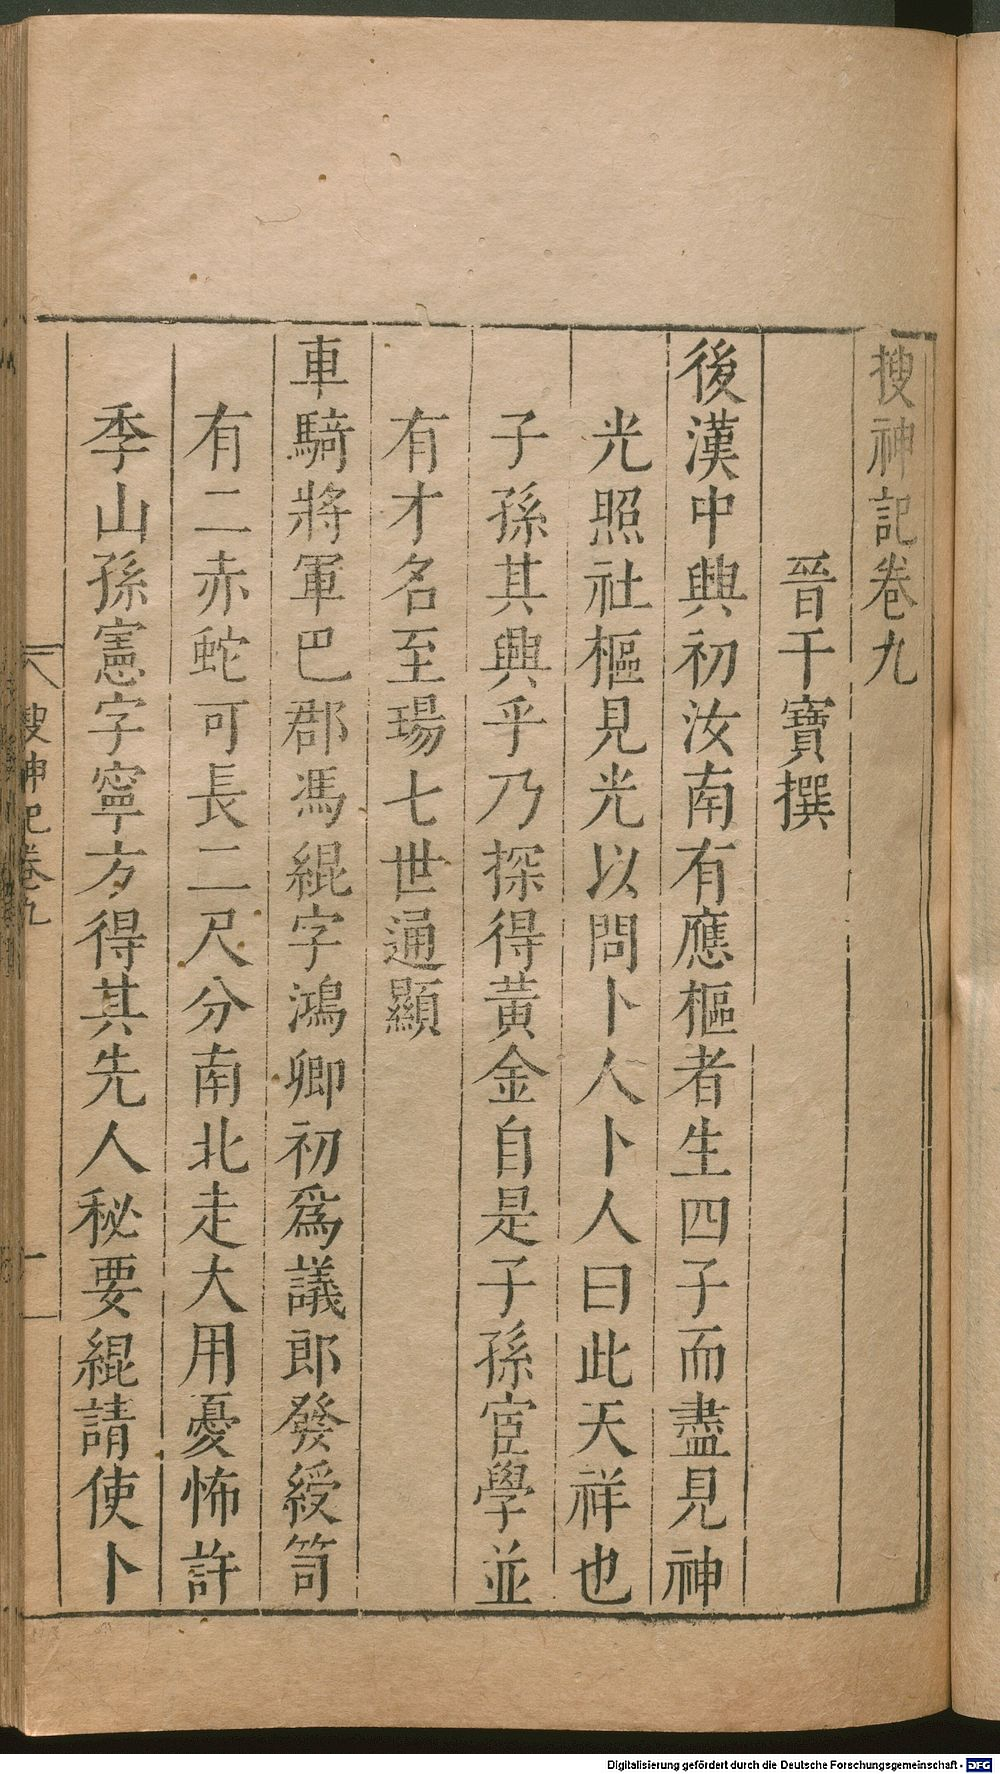 搜神記卷九
晉干寶撰
後漢中興初汝南有應樞者生四子而盡見神
光照社樞見光以問卜人卜人曰此天祥也
子孫其興乎乃探得黃金自是子孫宦學並
有才名至瑒七世通顯
車騎將軍巴郡馮緄字鴻卿初爲議郎發綬笥
有二赤蛇可長二尺分南北走大用憂怖許
季山孫憲字寧方得其先人秘要緄請使卜
搜神記卷九
一
Digitalisierung gefördert durch die Deutsche Forschungsgemeinschaft - DFG